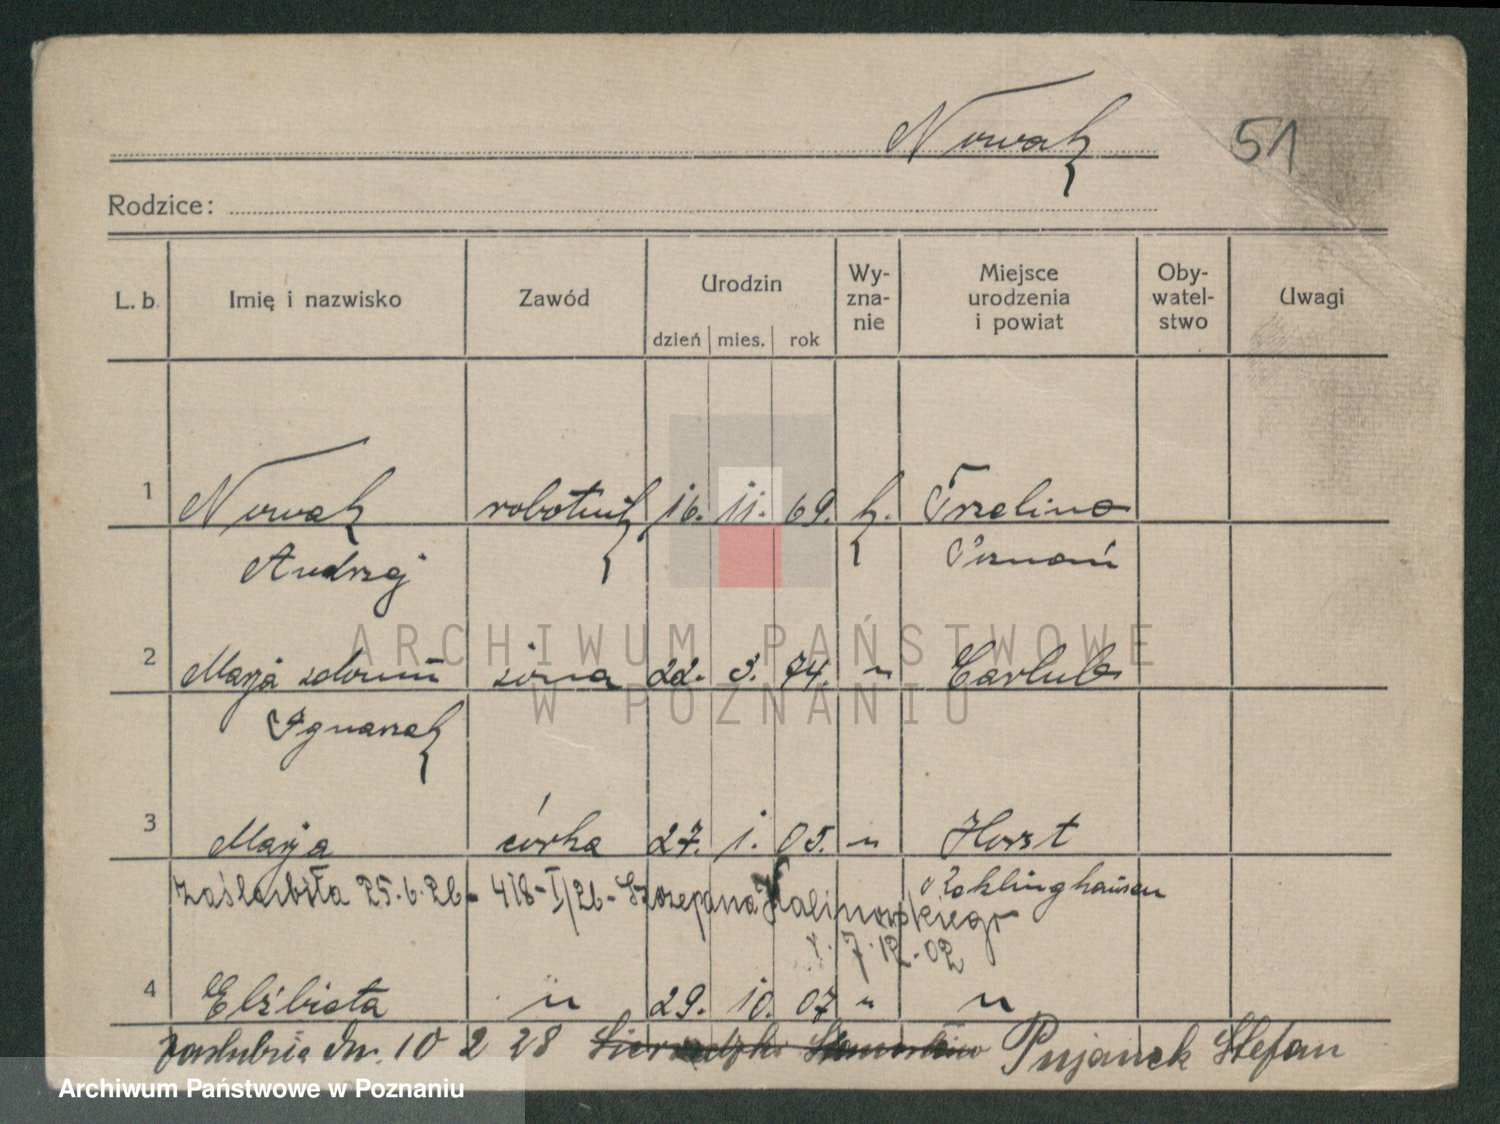 Nowak 51
Rodzice:
L. b. Imię i nazwisko Zawód Urodzin dzień mies. rok Wy-zna-nie Miejsce urodzenia i powiat Oby-watel-stwo Uwagi
1 Nowak robotnik 16. 11. 69. k.
Andrzej Poznań
ARCHIWUM PAŃSTWOWE
2 Marja żona 22. 3. 74. "
W POZNANIU
Ignaszak
3 Marja córka 27. 1. 05. " Horst
Zaślubiła 25.6.26 - 418-I/26 - Szczepana Kalinowskiego Reklinghausen
7.12.02
4 Elżbieta " 29. 10. 07 " "
zaślubiła dn. 10 2 28 Pujanek Stefan
Archiwum Państwowe w Poznaniu